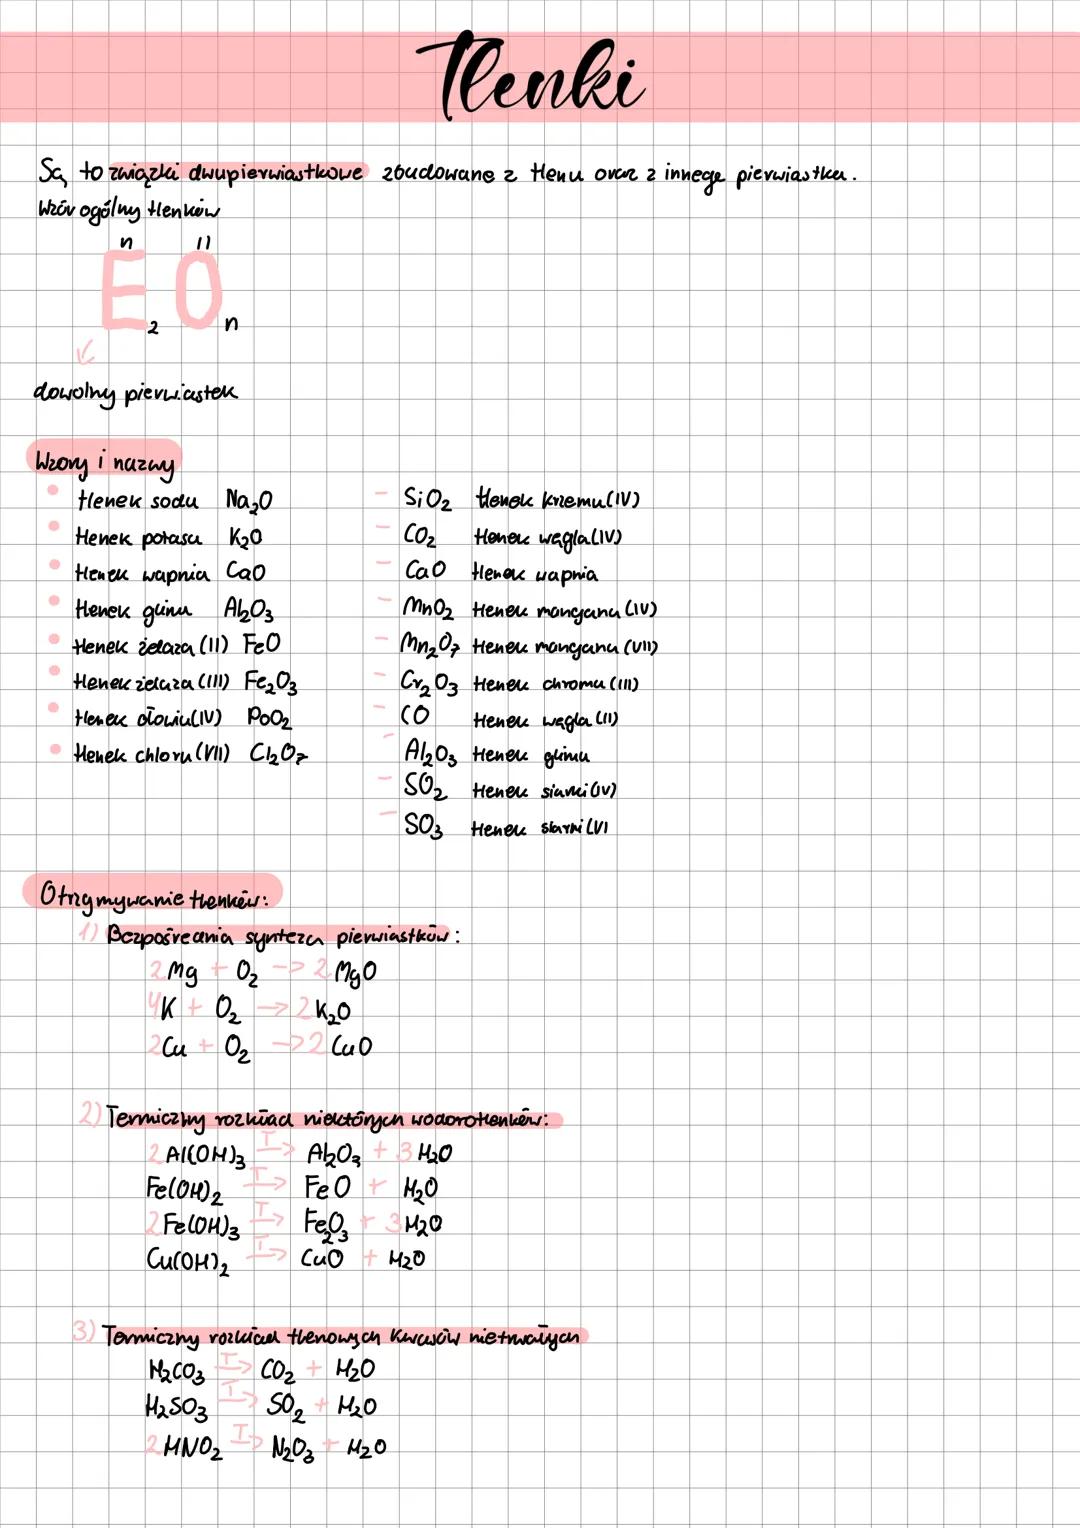 Tlenki
Są to związki dwupierwiastkowe zbudowane z tlenu oraz z innego pierwiastka.
Wzór ogólny tlenków
n II
E₂ Oₙ
dowolny pierwiastek
Wzory i nazwy
tlenek sodu Na₂O
tlenek potasu K₂O
tlenek wapnia CaO
tlenek glinu Al₂O₃
tlenek żelaza (II) FeO
tlenek żelaza (III) Fe₂O₃
tlenek ołowiu (IV) PoO₂
tlenek chloru (VII) Cl₂O₇
- SiO₂ tlenek krzemu (IV)
- CO₂ tlenek węgla (IV)
- CaO tlenek wapnia
- MnO₂ tlenek manganu (IV)
- Mn₂O₇ tlenek manganu (VII)
- Cr₂O₃ tlenek chromu (III)
- CO tlenek węgla (II)
- Al₂O₃ tlenek glinu
- SO₂ tlenek siarki (IV)
- SO₃ tlenek siarki (VI
Otrzymywanie tlenków:
1) Bezpośrednia synteza pierwiastków:
2 Mg + O₂ -> 2 MgO
4K + O₂ -> 2 K₂O
2 Cu + O₂ -> 2 CuO
2) Termiczny rozkład niektórych wodorotlenków:
2 Al(OH)₃ T-> Al₂O₃ + 3 H₂O
Fe(OH)₂ T-> FeO + H₂O
2 Fe(OH)₃ T-> Fe₂O₃ + 3 H₂O
Cu(OH)₂ T-> CuO + H₂O
3) Termiczny rozkład tlenowych kwasów nietrwałych
H₂CO₃ T-> CO₂ + H₂O
H₂SO₃ T-> SO₂ + H₂O
2 HNO₂ T-> N₂O₃ + H₂O